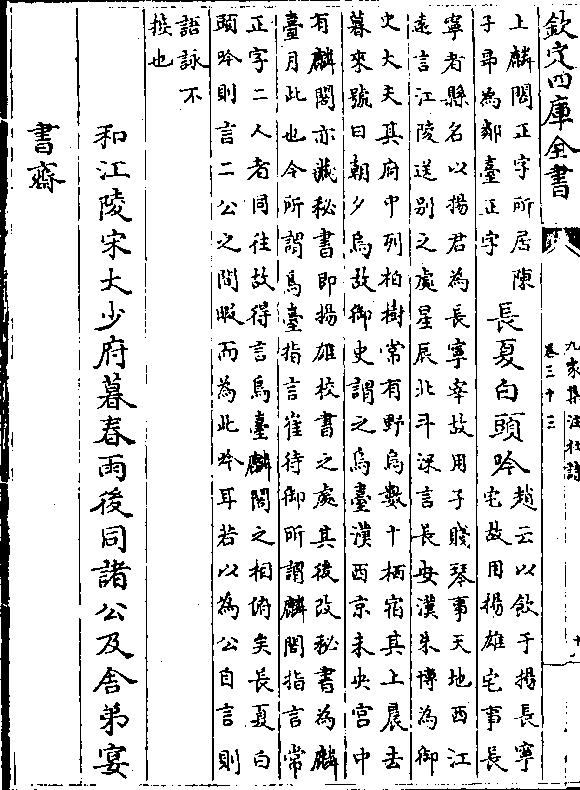 欽定四庫全書
九家集注杜詩
卷三十三
上麟閣正字所居陳
子昂為鄰臺正字
長夏白頭吟
趙云以飲于揚長寧
宅故用揚雄宅事長
寧者縣名以揚君為長寧宰故用子賤琴事天地西江
遠言江陵送别之處星辰北斗深言長安漢朱博為御
史大夫其府中列柏樹常有野烏數十栖宿其上晨去
暮來號曰朝夕烏故御史謂之烏臺漢西京未央宫中
有麟閣亦藏秘書即揚雄校書之處其後改秘書為麟
臺月此也今所謂烏臺指言崔侍御所謂麟閣指言常
正字二人者同往故得言烏臺麟閣之相俯矣長夏白
頭吟則言二公之間暇而為此吟耳若以為公自言則
語詠不
接也
和江陵宋大少府暮春雨後同諸公及舍弟宴
書齋